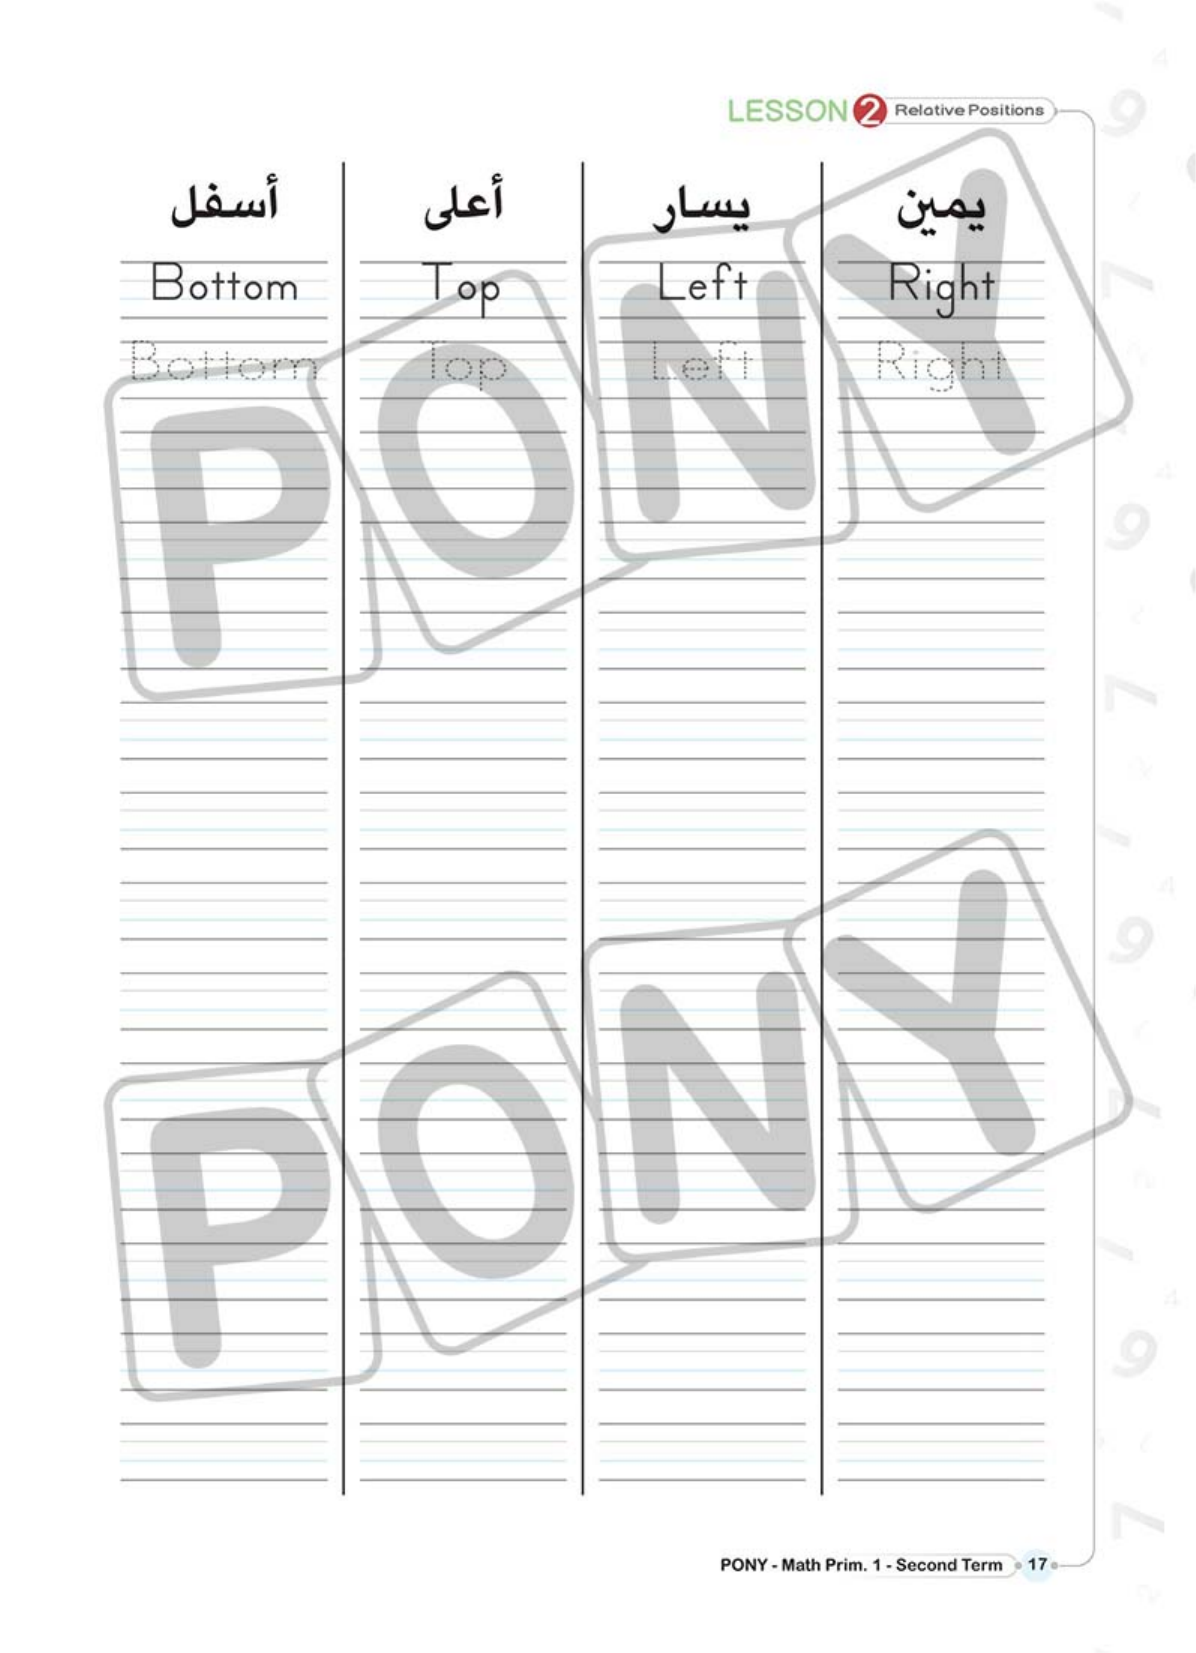 LESSON 2 Relative Positions
أسفل أعلى يسار يمين
Bottom Top Left Right
Bottom Top Left Right
PONY
PONY
PONY - Math Prim. 1 - Second Term 17